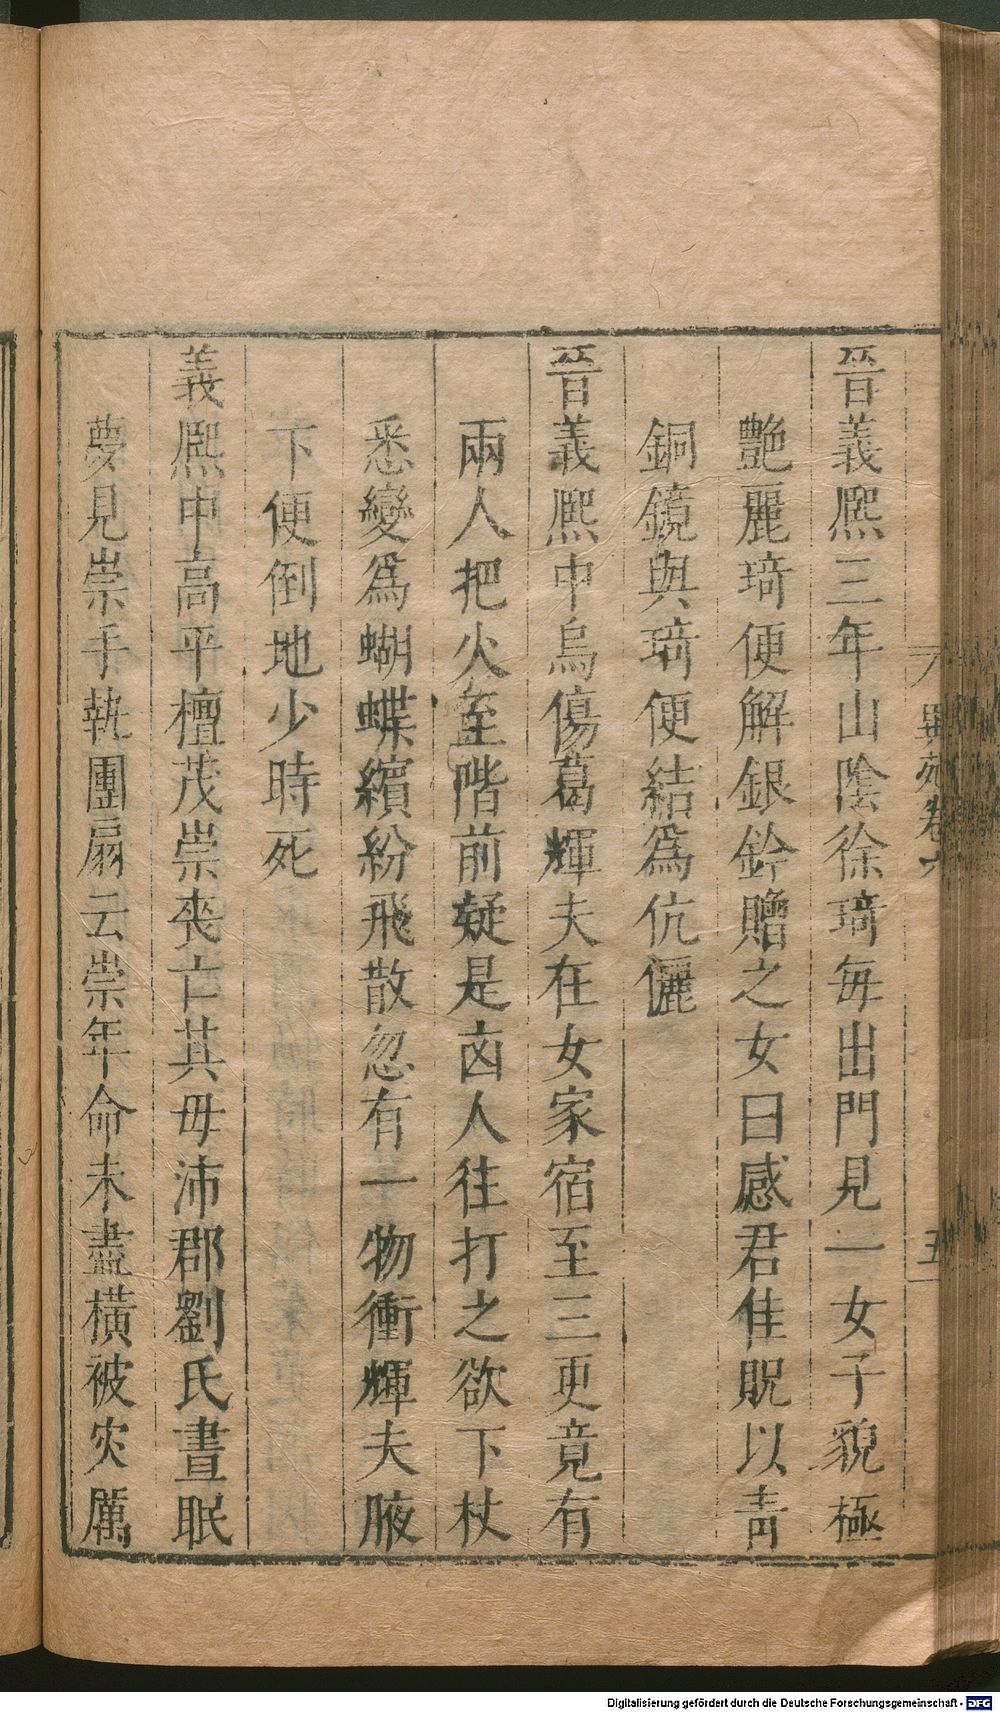 異苑卷六
五
晉義熙三年山陰徐琦每出門見一女子貌極
艷麗琦便解銀鈴贈之女曰感君佳貺以靑
銅鏡與琦便結爲伉儷
晉義熙中烏傷葛輝夫在女家宿至三更竟有
兩人把火至階前疑是凶人往打之欲下杖
悉變爲蝴蝶繽紛飛散忽有一物衝輝夫腋
下便倒地少時死
義熙中高平檀茂崇喪亡其母沛郡劉氏晝眠
夢見崇手執團扇云崇年命未盡橫被灾厲
Digitalisierung gefördert durch die Deutsche Forschungsgemeinschaft - DFG